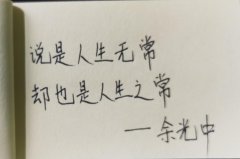 说是人生无常
却也是人生之常
——余光中